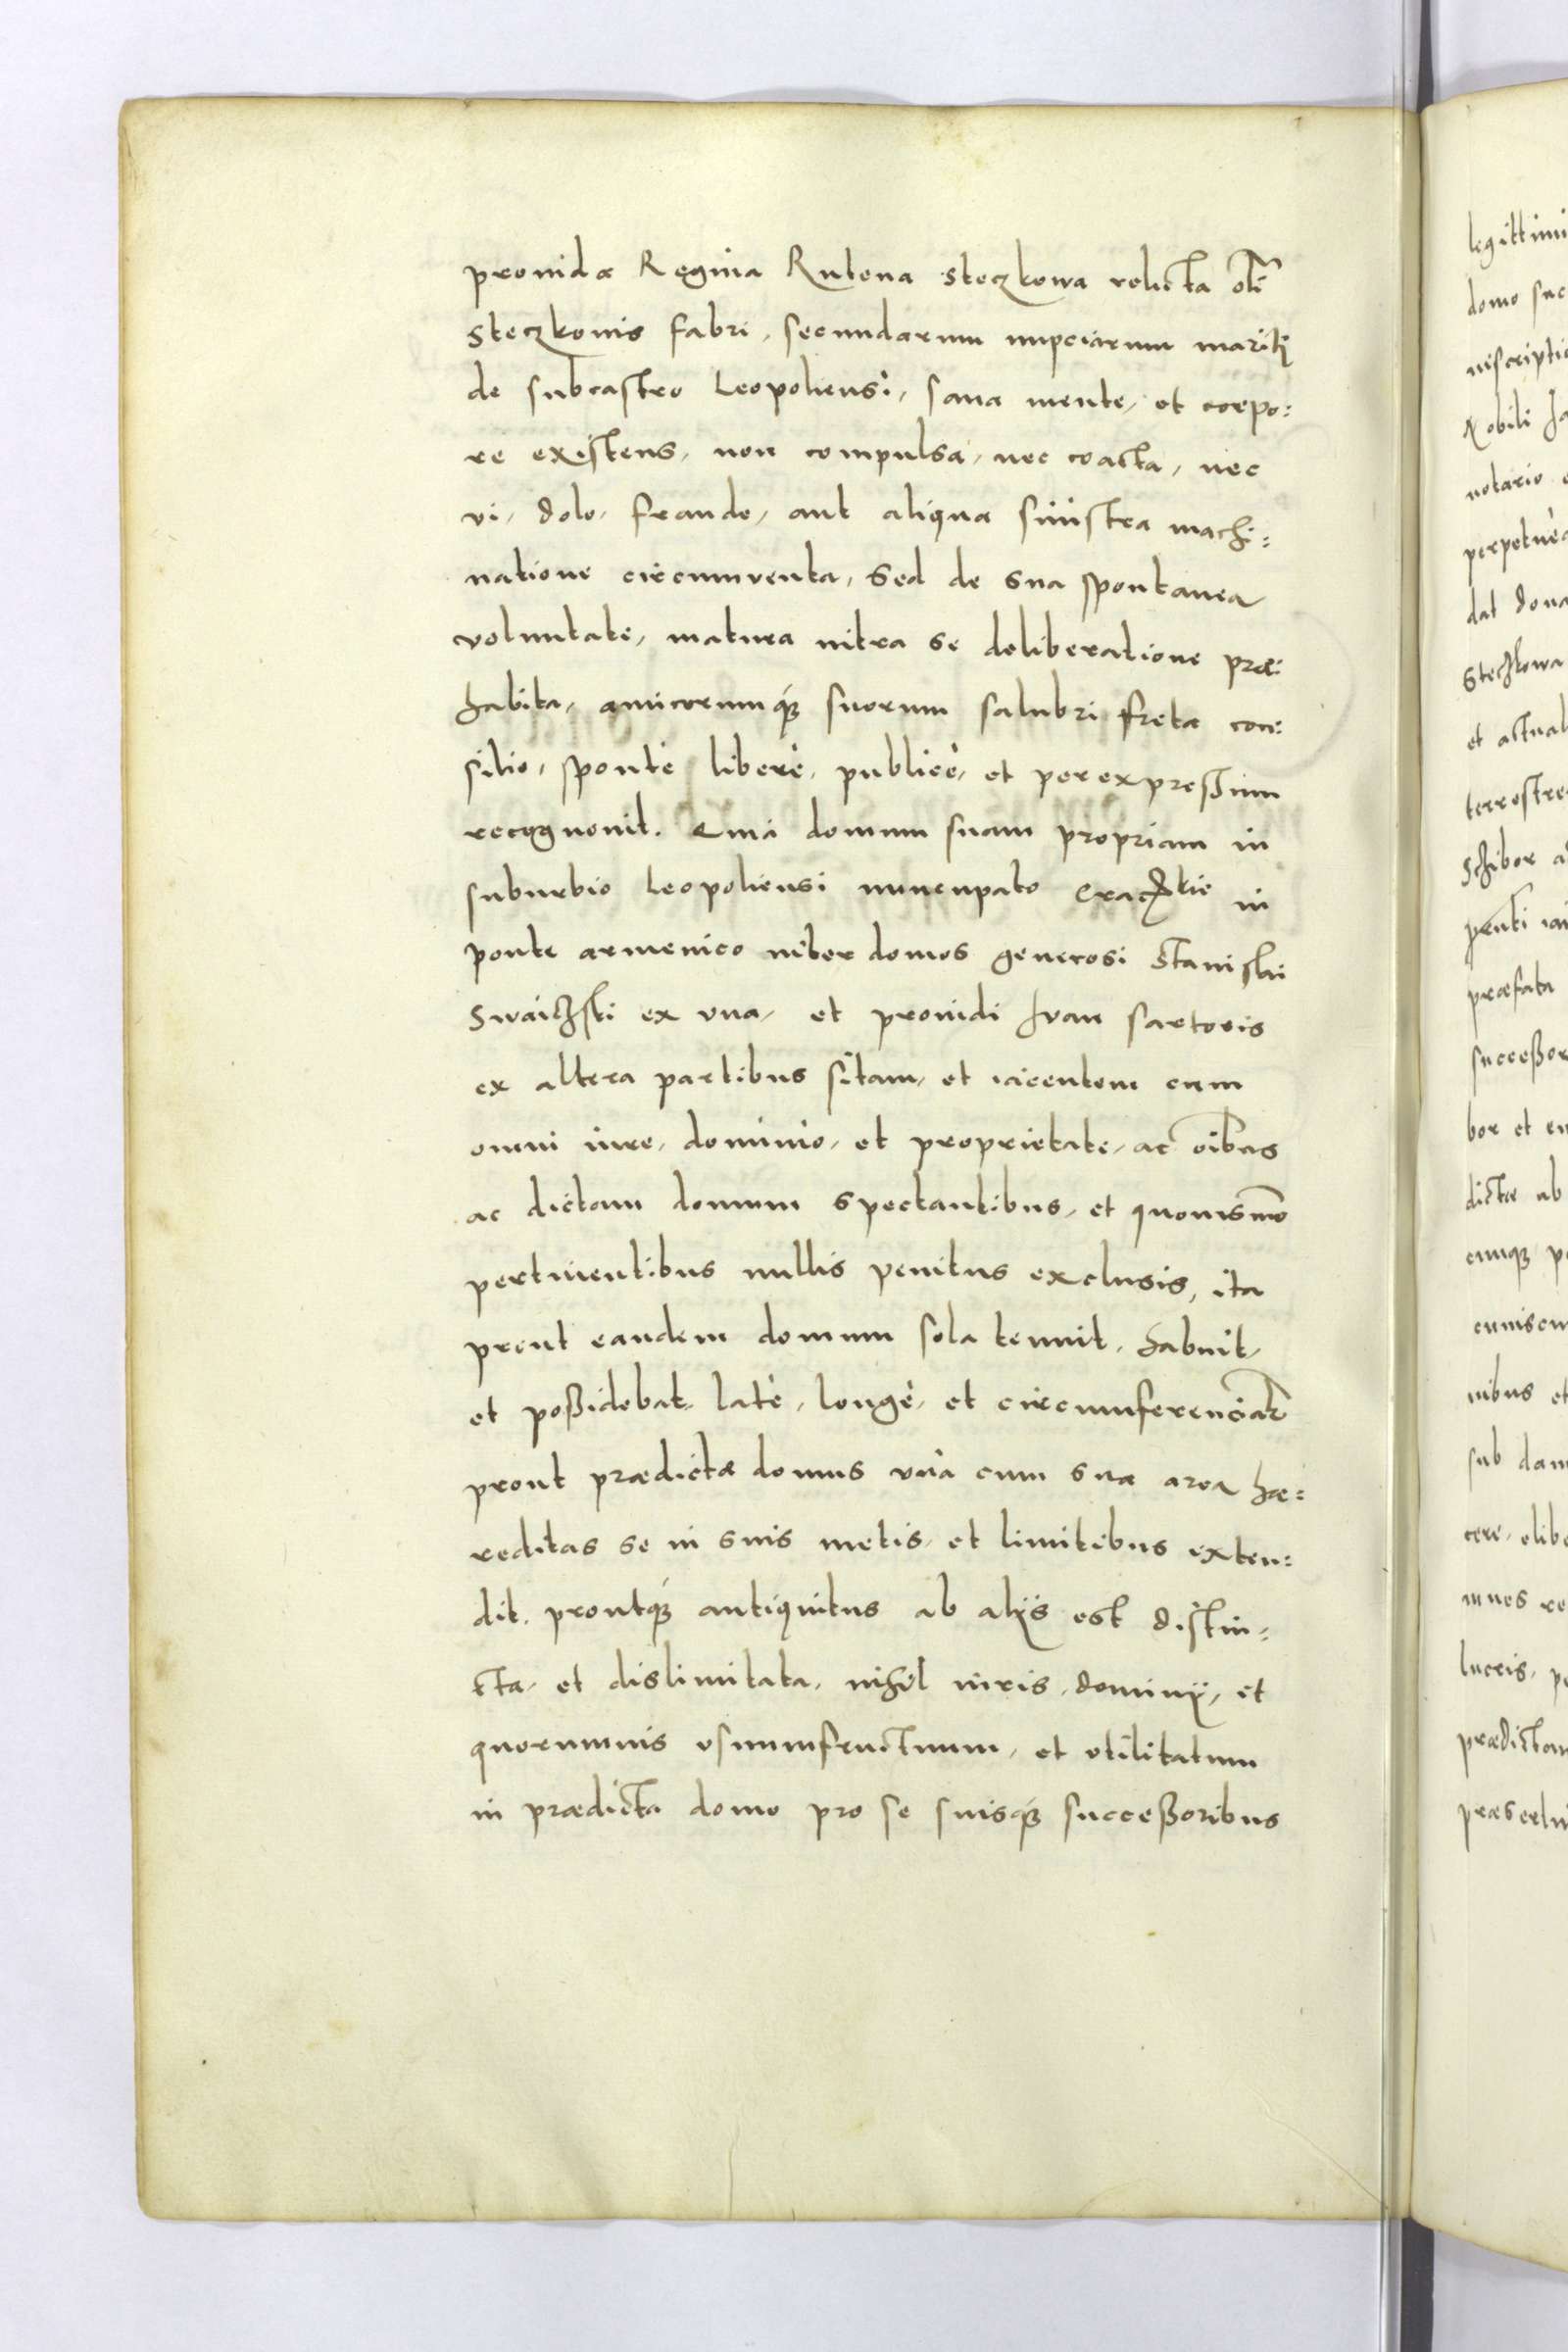 prouida Regina Rutena Steczkowa relicta oli
Steczkonis fabri, secundarum nupciarum mariti
de subcastro Leopoliensi, sana mente, et corpo:
re existens, non compulsa, nec coacta, nec
vi, dolo, fraude, aut aliqua sinistra machi:
natione circumventa, Sed de sua spontanea
voluntate, matura intra se deliberatione præ:
habita, amicorumq́ꝫ suorum salubri freta con:
silio, spontè liberè, publicè, et per expreßum
recognouit. Quia domum suam propriam in
suburbio Leopoliensi nuncupato in
ponte armenico inter domos generosi Stanislai
Swaichski ex vna, et prouidi Iuan sartoris
ex altera partibus sitam, et iacentem cum
omni iure, dominio, et proprietate, ac oibus
ac dictam domum spectantibus, et quouismo
pertinentibus nullis penitus exclusis, ita
prout eandem domum sola tenuit, habuit,
et poßidebat, latè, longè, et circumferencialr
prout prædicta domus vnà cum sua area hæ:
reditas se in suis metis, et limitibus exten:
dit. proutq́ꝫ antiquitus ab alijs est distin:
cta, et dislimitata, nihil iuris, dominij, et
quorumuis vsumfructuum, et vtilitatum
in prædicta domo pro se suisq́ꝫ succeßoribus
legittimi
domo suc
inscriptio
Nobili Ja
notario
perpetuè
dat dona
Steczkowa
et actual
terrestre
Schibor
prnti
præfata
succeßor
bor et
dictæ ab
cumqꝫ
cuiuscu
nibus et
sub dam
cere,
lucris,
prædictam